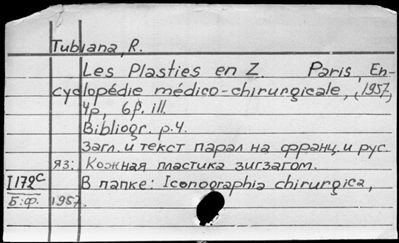 Tubiana, R.
Les Plasties en Z. Paris, En-
cyclopédie médico-chirurgicale, (1957,
4p, 6p. ill.
Bibliogr. p.4.
Загл. и текст парал на франц. и рус.
яз: Кожная пластика зигзагом.
I172c В папке: Iconographia chirurgica,
Б:ф. 1957.